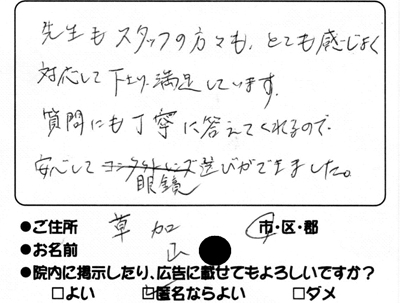 先生もスタッフの方々も、とても感じよく
対応して下さり満足しています。
質問にも丁寧に答えてくれるので、
安心してコンタクトレンズ選びができました。
眼鏡
●ご住所 草加 市・区・郡
●お名前 山
●院内に掲示したり、広告に載せてもよろしいですか?
□よい ☑匿名ならよい □ダメ